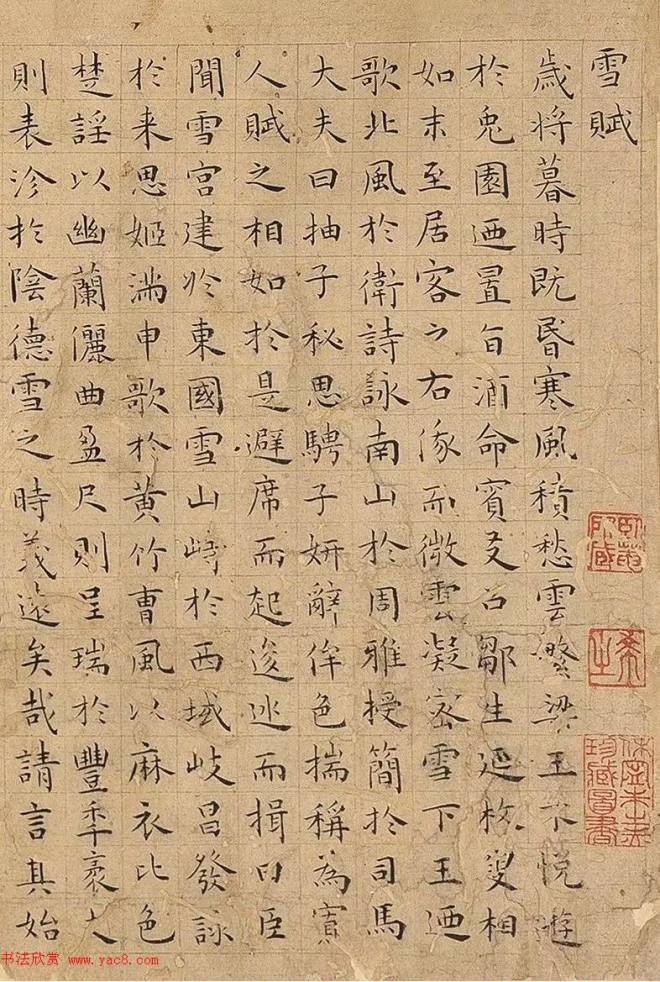 雪賦
歲將暮時既昬寒風積愁雲繁梁王不悅遊
於兎園迺置旨酒命賓友召鄒生延枚叟相
如末至居客之右俄而微雲凝密雪下王迺
歌北風於衛詩詠南山於周雅授簡於司馬
大夫曰抽子秘思騁子妍辭侔色揣稱為寡
人賦之相如於是避席而起逡巡而揖曰臣
聞雪宮建於東國雪山峙於西域岐昌發詠
於来思姬滿申歌於黄竹曹風以麻衣比色
楚謡以幽蘭儷曲盈尺則呈瑞於豐年袤丈
則表沴於陰德雪之時義遠矣哉請言其始
臥菴所藏
休寧朱之赤珍藏圖書
书法欣赏 www.yac8.com